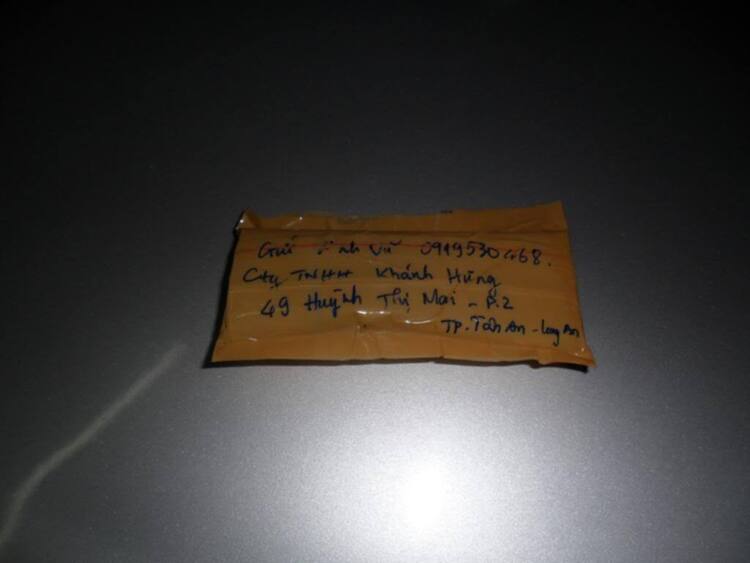 Gửi Anh Vũ 0919530468.
Cty TNHH Khánh Hưng
49 Huỳnh Thị Mai - P.2
TP. Tân An - Long An